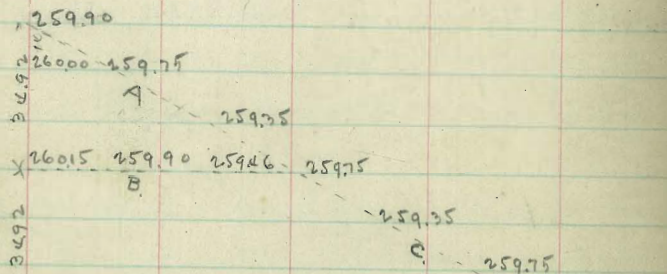 259.90
260.00 259.75
34.92
A
259.35
260.15 259.90 259.46 259.75
B
259.35
34.92
C
259.75